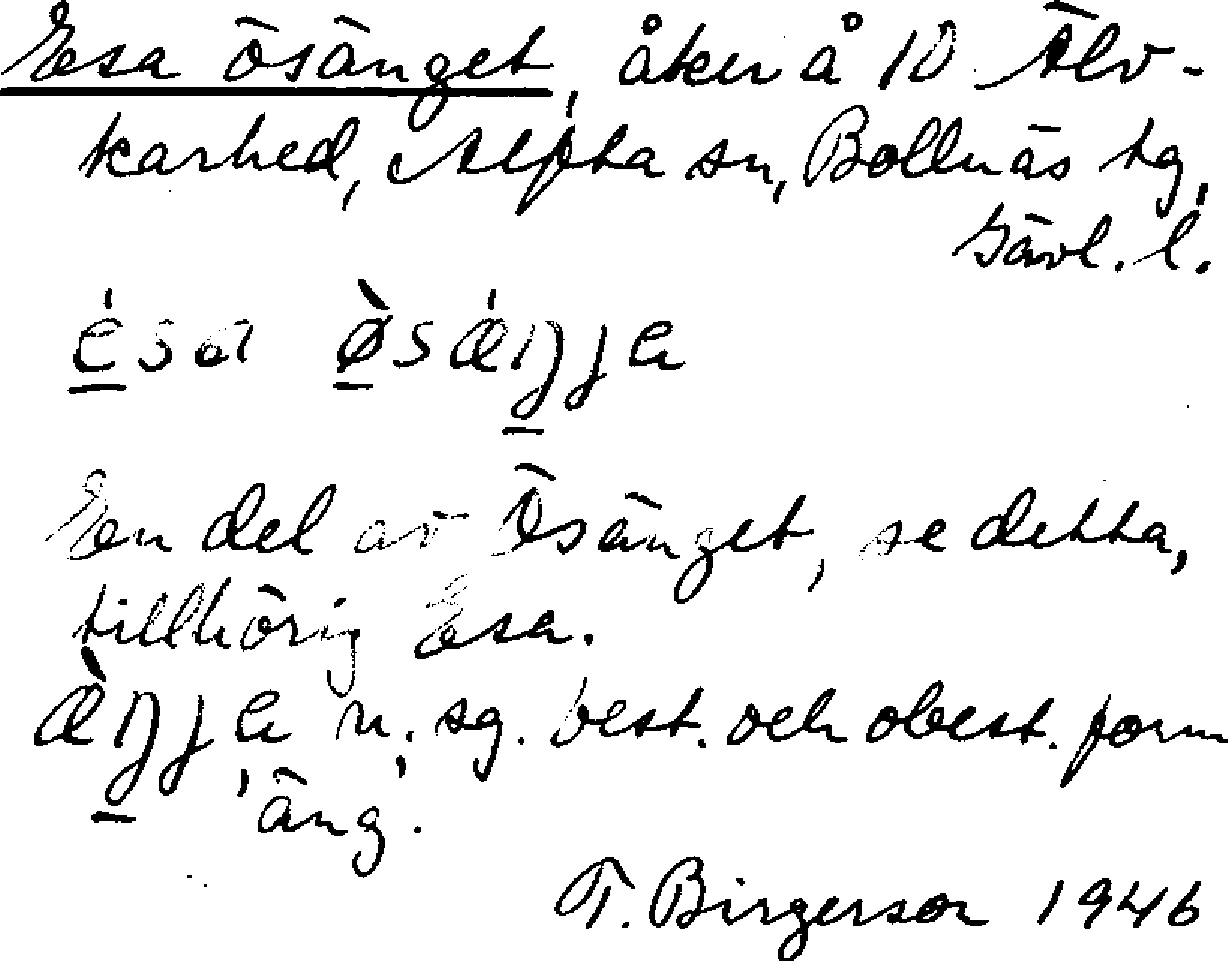 Esa ösänget, åker å 10 Älv-
karhed, Alfta sn, Bollnäs tg,
Gävl. l.
ésa ø̀sǽŋjɐ
En del av Ösänget, se detta,
tillhörig Esa.
æ̀ŋjɐ n. sg. best. och obest. form
'äng'.
T. Birgerson 1946